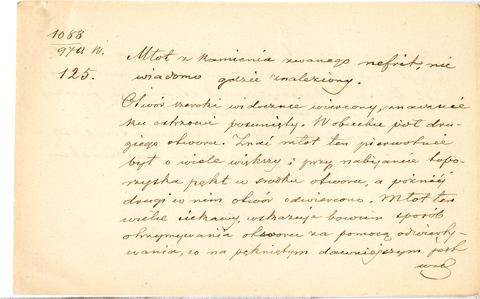 1088
974 W.
125.
Młot z kamienia zwanego nefrit, nie
wiadomo gdzie znaleziony.
Otwór szeroki widocznie wiercony, znacznie
ku ostrzowi posunięty. W obuchu jest dru-
giego otworu. Znać młot ten pierwotnie
był o wiele większy i przy nabijaniu topo-
rzyska pękł w środku otworu, a później
drugi w nim otwór odwiercono. Młot ten
wielce ciekawy, wskazuje bowiem sposób
otrzymywania otworu za pomocą odwierty-
wania, co na pękniętym dawniejszym jest